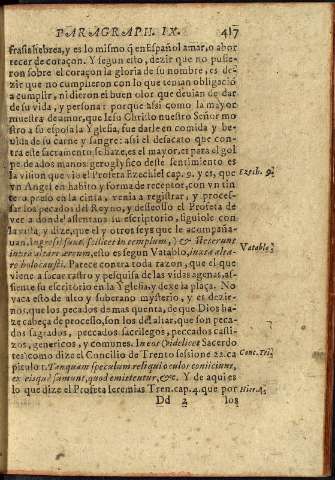 PARAGRAPH. IX. 417
frasis hebrea, y es lo mismo q̃ en Español amar, o abor
recer de coraçon. Y segun esto, dezir que no pusie-
ron sobre el coraçon la gloria de su nombre, es de-
zir que no cumplieron con lo que tenian obligació
a cumplir, ni dieron el buen olor que deuian de dar
de su vida, y persona: porque assi como la mayor
muestra de amor, que Iesu Christo nuestro Señor mo
stro a su esposa la Yglesia, fue darle en comida y be-
uida de su carne y sangre: assi el desacato que con-
tra este sacramento se haze, es el mayor, et para el gol
pe de ados manos geroglyfico deste sentimiento es
la vision que vio el Profeta Ezechiel cap. 9. y es, que Ezech. 9.
vn Angel en habito y forma de receptor, con vn tin
tero preso en la cinta, venia a registrar, y proces-
sar los pecados del Reyno, y desseoso el Profeta de
ver a donde assentaua su escriptorio, siguiole con
la vista, y dize, que el y otros seys que le acompaña-
uan, Ingressi sunt, scilicet in templum, & steterunt
iuxta altare æreum, esto es segun Vatablo, iuxta alta- Vatablo.
re holocausti. Parece contra toda razon, que el que
viene a sacar rastro y pesquisa de las vidas agenas, as-
siente su escritorio en la Yglesia, y dexe la plaça. No
vaca esto de alto y soberano mysterio, y es dezir-
nos, que los pecados de mas quenta, de que Dios ha-
ze cabeça de processo, son los del altar, que son peca-
dos sagrados, peccados sacrilegos, peccados casti-
zos, genericos, y comunes. In eos Sacerdo
tes como dize el Concilio de Trento sessione 22. ca Conc. Tri.
pitulo 1. Tanquam speculum reliqui oculos coniiciunt,
ex eisque sumunt, quod &c. Y de aqui es
lo que dize el Profeta Ieremias Tren. cap. 4. que por Hier. 4.
Dd 2 los